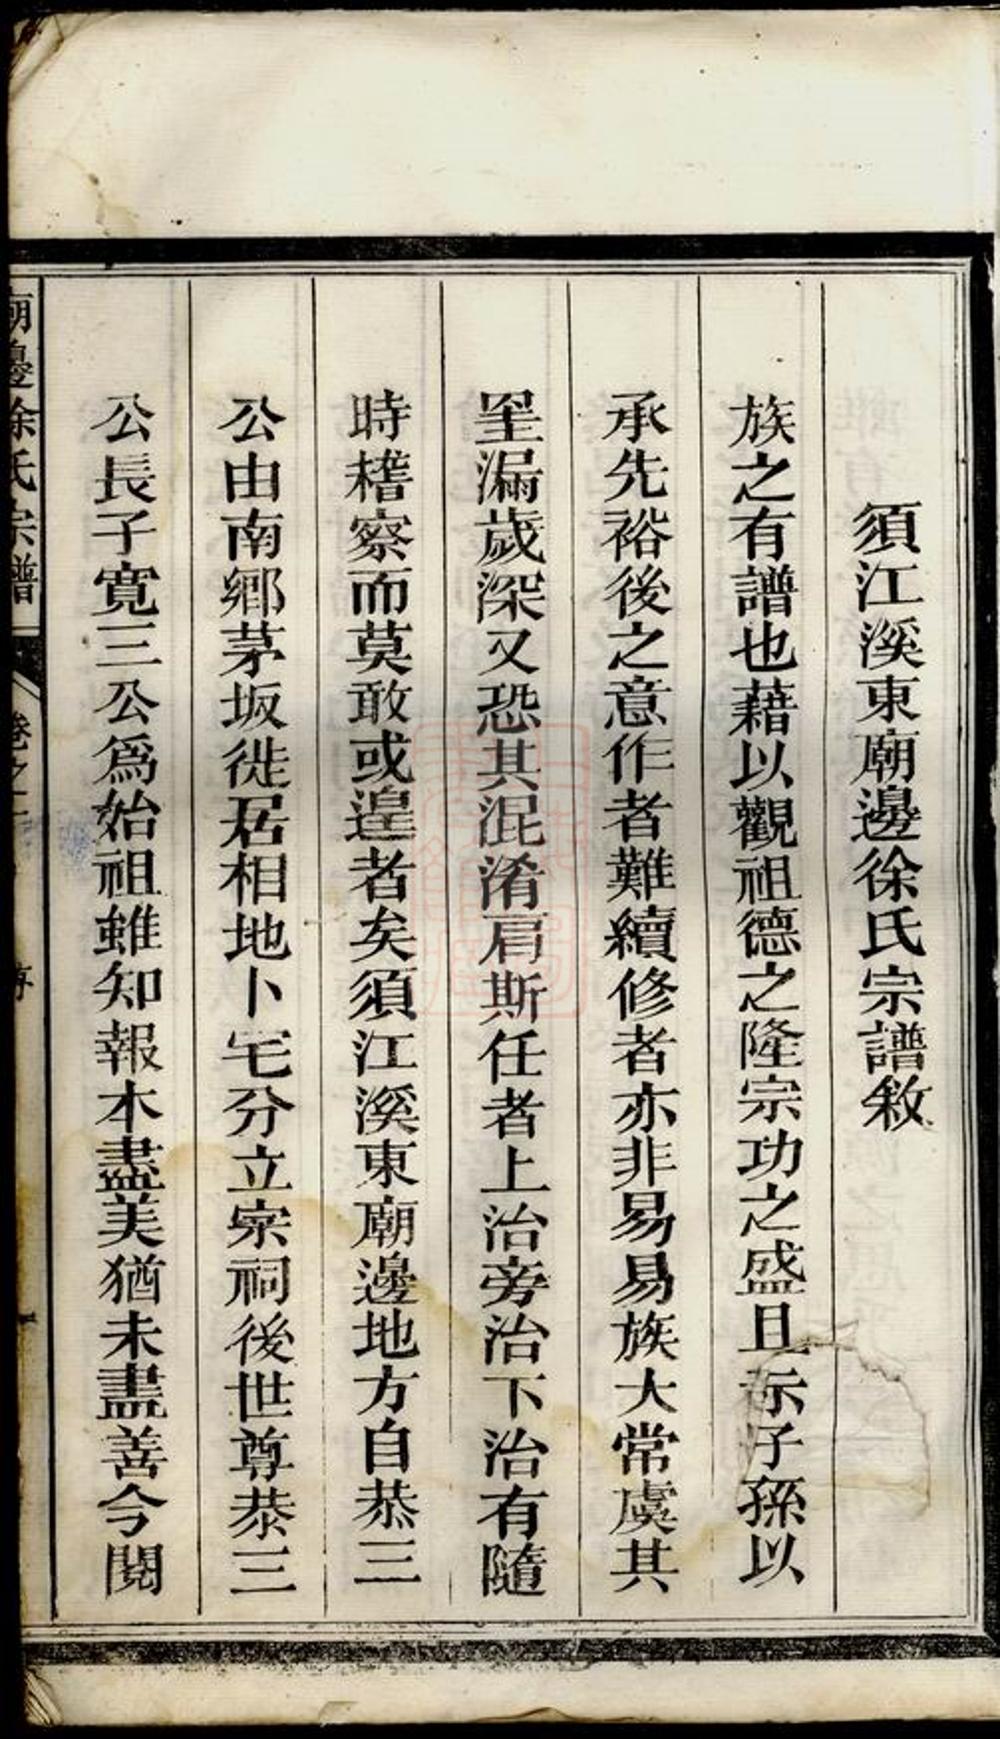 須江溪東廟邊徐氏宗譜敘
族之有譜也藉以觀祖德之隆宗功之盛且示子孫以
承先裕後之意作者難續修者亦非易易族大常虞其
罣漏歲深又恐其混淆肩斯任者上治旁治下治有隨
時稽察而莫敢或遑者矣須江溪東廟邊地方自恭三
公由南鄉茅坂徙居相地卜宅分立宗祠後世尊恭三
公長子寬三公為始祖雖知報本盡美猶未盡善今閱
廟邊徐氏宗譜
卷之一
序
一